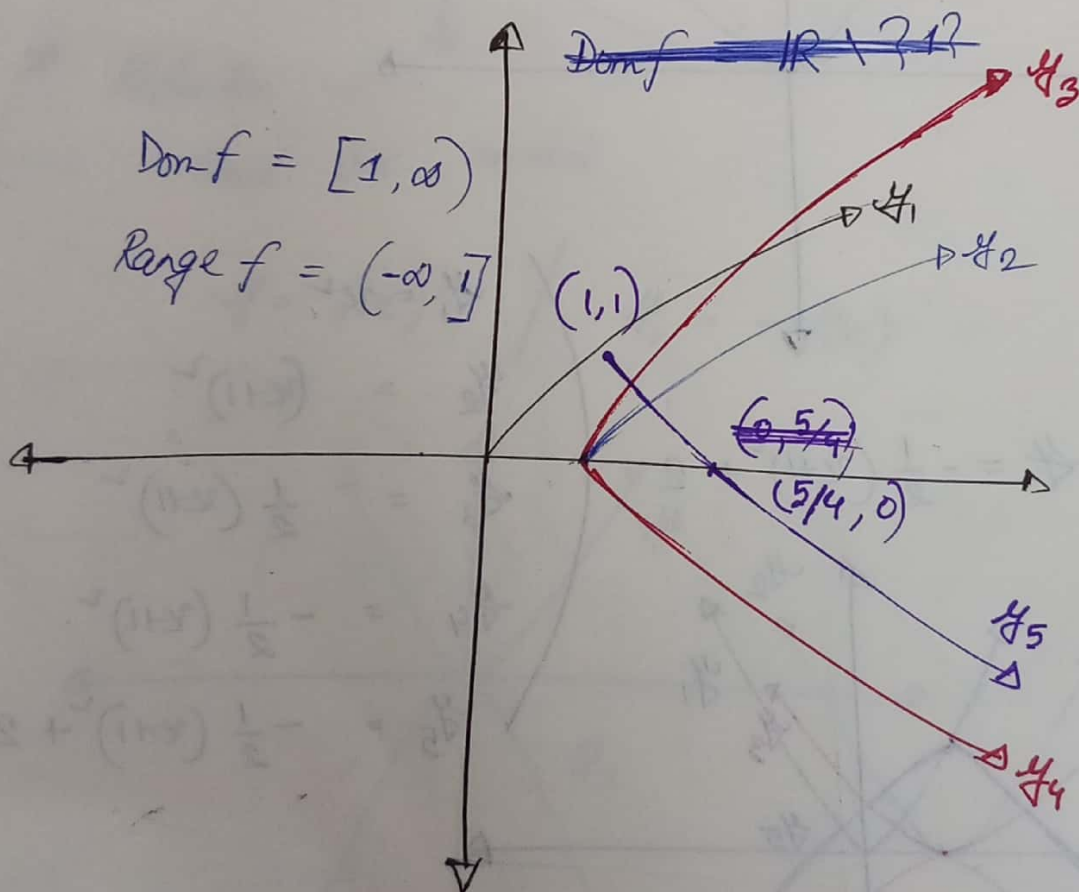 Dom f = IR \ {1}
y₃
Dom f = [1, ∞)
y₁
Range f = (-∞, 1]
y₂
(1,1)
(0, 5/4)
(5/4, 0)
y₅
y₄